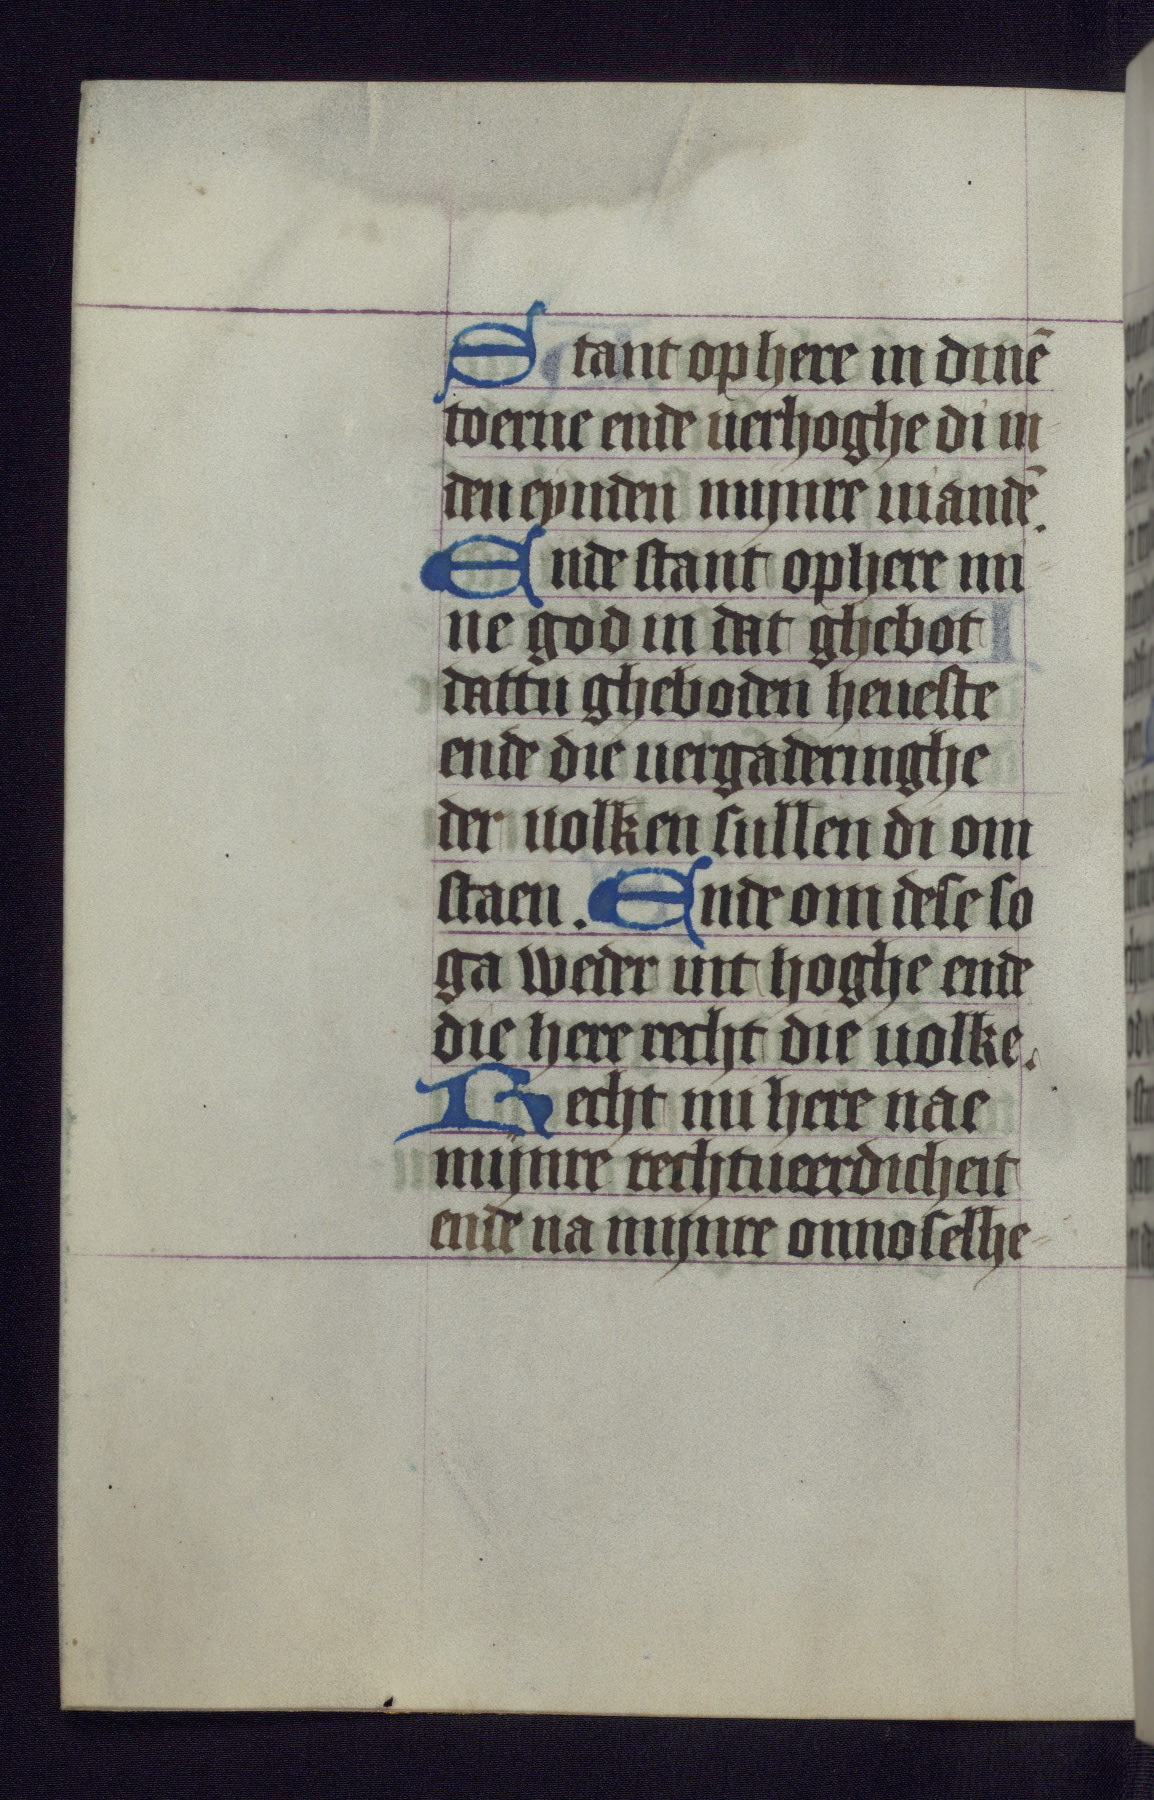 Stant op here in dinē
toerne ende uerhoghe di in
den eynden mijnre uiandē.
Ende stant op here mi
ne god in dat ghebot
dattu gheboden heueste
ende die uergaderinghe
der uolken sullen di om
staen. Ende om dese so
ga weder int hoghe ende
die here recht die uolke.
Recht mi here nae
mijnre rechtueerdicheit
ende na mijnre onnoselhe